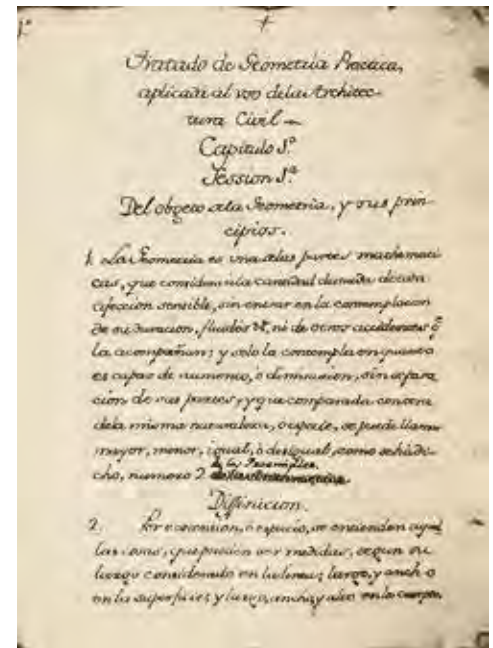 Tratado de Geometria Practica,
aplicada al uso dela Architec-
tura Civil
Capitulo 1º
Session 1ª
Del obgeto dela Geometria, y sus prin-
cipios.
1. La Geometria es una delas partes mathemati
cas, que considera la cantidad
afeccion sensible, sin entrar en la contemplacion
de su duracion, fluidos &, ni de otros accidentes q̃
la acompañan; y solo la contempla en quanto
es capaz de aumento, ò diminucion, sin separa
cion de sus partes, y que comparada con otra
dela misma naturaleza, ò especie, se puede llamar
mayor, menor, igual, ò desigual, como se hà di-
cho, numero 2
Diffinicion.
2. Por extencion, ò espacio, se entienden aque
las cosas, que pueden ser medidas, segun su
largo considerado en la linea; largo, y ancho
en la superficies y largo, ancho, y alto en el cuerpo.